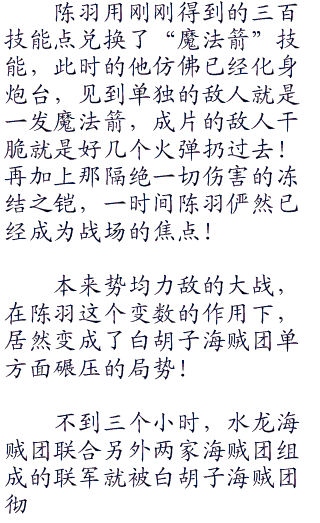 陈羽用刚刚得到的三百
技能点兑换了“魔法箭”技
能，此时的他仿佛已经化身
炮台，见到单独的敌人就是
一发魔法箭，成片的敌人干
脆就是好几个火弹扔过去！
再加上那隔绝一切伤害的冻
结之铠，一时间陈羽俨然已
经成为战场的焦点！
本来势均力敌的大战，
在陈羽这个变数的作用下，
居然变成了白胡子海贼团单
方面碾压的局势！
不到三个小时，水龙海
贼团联合另外两家海贼团组
成的联军就被白胡子海贼团
彻